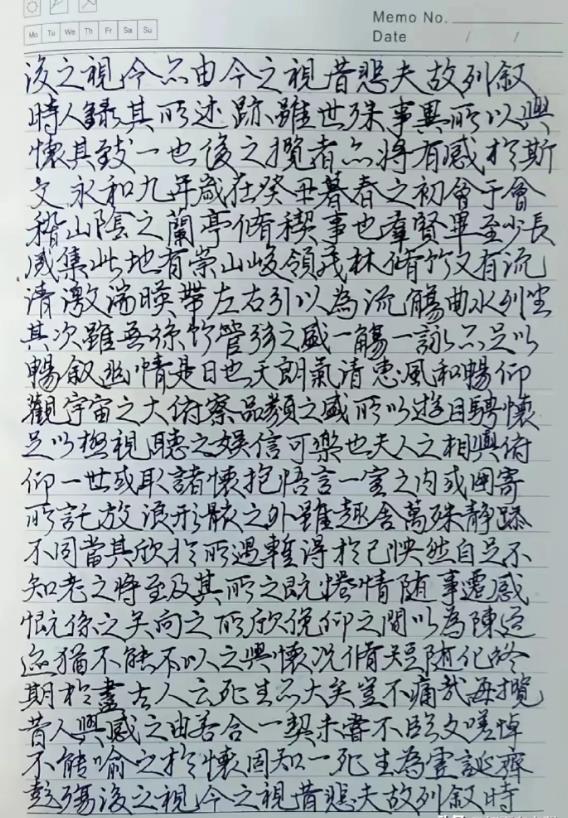 Memo No.
Mo Tu We Th Fr Sa Su
Date / /
後之視今亦由今之視昔悲夫故列叙
時人録其所述跡雖世殊事異所以興
懷其致一也後之攬者亦將有感於斯
文永和九年歲在癸丑暮春之初會于會
稽山陰之蘭亭脩稧事也羣賢畢至少長
咸集此地有崇山峻領茂林脩竹又有流
清激湍暎帶左右引以為流觴曲水列坐
其次雖無絲竹管弦之盛一觴一詠亦足以
暢叙幽情是日也天朗氣清惠風和暢仰
觀宇宙之大俯察品類之盛所以遊目騁懷
足以極視聽之娛信可樂也夫人之相與俯
仰一世或取諸懷抱悟言一室之內或因寄
所託放浪形骸之外雖趣舍萬殊静躁
不同當其欣於所遇蹔得於己怏然自足不
知老之將至及其所之既惓情随事遷感
慨係之矣向之所欣俛仰之間以為陳迹
猶不能不以之興懷况脩短随化終
期於盡古人云死生亦大矣豈不痛哉每攬
昔人興感之由若合一契未嘗不臨文嗟悼
不能喻之於懷固知一死生為虛誕齊
彭殤後之視今之視昔悲夫故列叙時